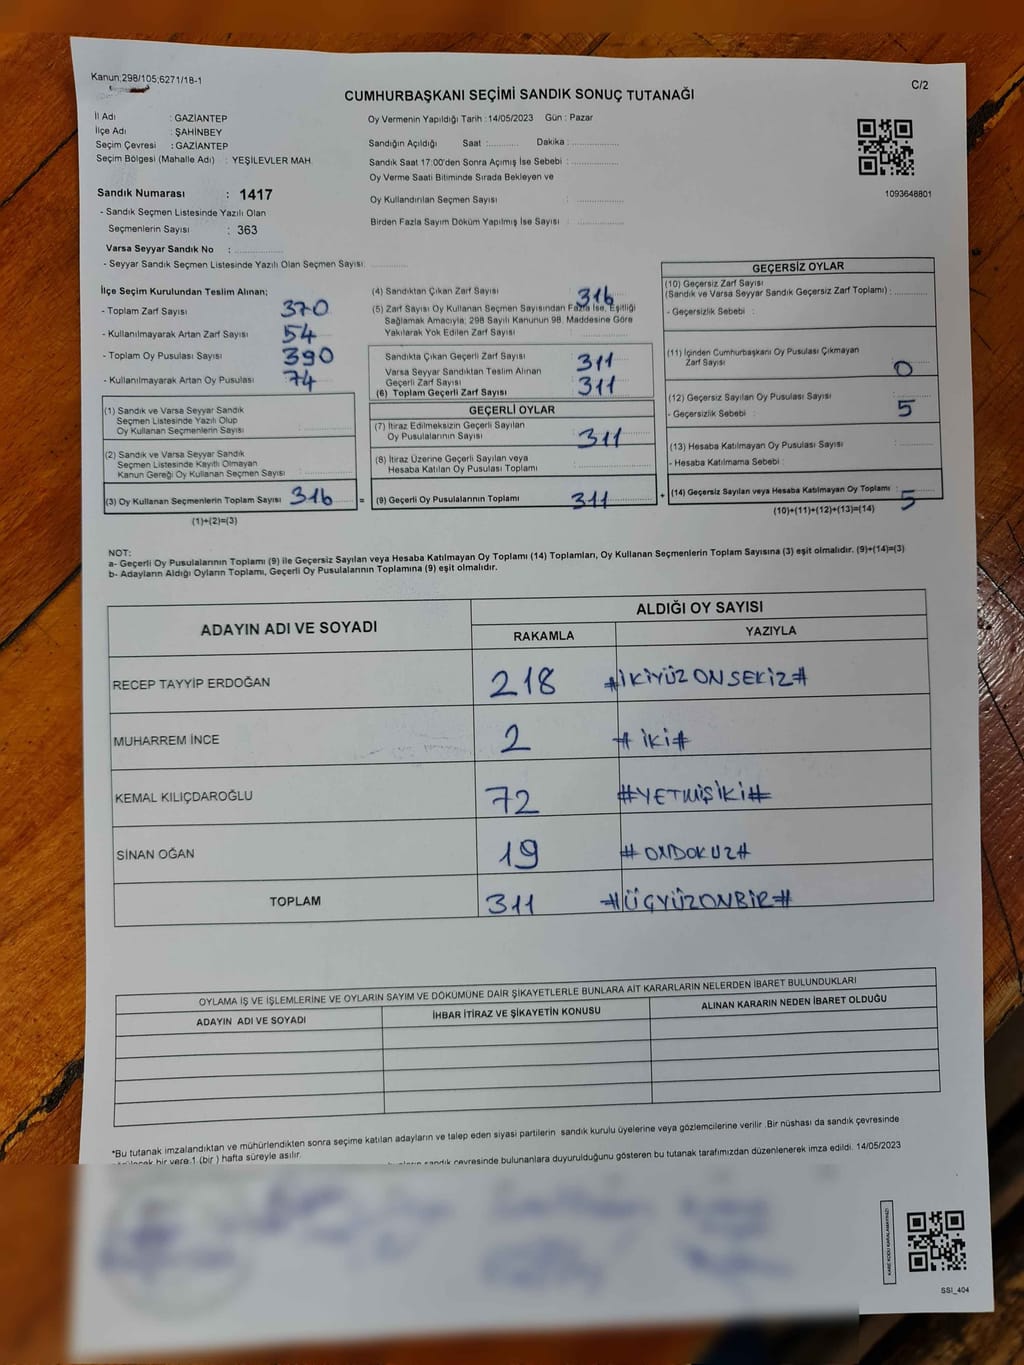 Kanun:298/105;6271/18-1
C/2
CUMHURBAŞKANI SEÇİMİ SANDIK SONUÇ TUTANAĞI
İl Adı : GAZİANTEP
İlçe Adı : ŞAHİNBEY
Seçim Çevresi : GAZİANTEP
Seçim Bölgesi (Mahalle Adı) : YEŞİLEVLER MAH.
Oy Vermenin Yapıldığı Tarih : 14/05/2023 Gün : Pazar
Sandığın Açıldığı Saat :........... Dakika :................
Sandık Saat 17:00'den Sonra Açımış İse Sebebi :................
Oy Verme Saati Bitiminde Sırada Bekleyen ve
Oy Kullandırılan Seçmen Sayısı :................
Birden Fazla Sayım Döküm Yapılmış İse Sayısı :................
1093648801
Sandık Numarası : 1417
- Sandık Seçmen Listesinde Yazılı Olan
Seçmenlerin Sayısı : 363
Varsa Seyyar Sandık No :................
- Seyyar Sandık Seçmen Listesinde Yazılı Olan Seçmen Sayısı:............
İlçe Seçim Kurulundan Teslim Alınan;
- Toplam Zarf Sayısı 370
- Kullanılmayarak Artan Zarf Sayısı 54
- Toplam Oy Pusulası Sayısı 390
- Kullanılmayarak Artan Oy Pusulası 74
(1) Sandık ve Varsa Seyyar Sandık
Seçmen Listesinde Yazılı Olup
Oy Kullanan Seçmenlerin Sayısı :................
(2) Sandık ve Varsa Seyyar Sandık
Seçmen Listesinde Kayıtlı Olmayan
Kanun Gereği Oy Kullanan Seçmen Sayısı :................
(3) Oy Kullanan Seçmenlerin Toplam Sayısı 316 =
(1)+(2)=(3)
(4) Sandıktan Çıkan Zarf Sayısı : 316
(5) Zarf Sayısı Oy Kullanan Seçmen Sayısından Fazla İse, Eşitliği
Sağlamak Amacıyla; 298 Sayılı Kanunun 98. Maddesine Göre
Yakılarak Yok Edilen Zarf Sayısı :................
Sandıkta Çıkan Geçerli Zarf Sayısı : 311
Varsa Seyyar Sandıktan Teslim Alınan
Geçerli Zarf Sayısı
(6) Toplam Geçerli Zarf Sayısı : 311
GEÇERLİ OYLAR
(7) İtiraz Edilmeksizin Geçerli Sayılan
Oy Pusulalarının Sayısı : 311
(8) İtiraz Üzerine Geçerli Sayılan veya
Hesaba Katılan Oy Pusulası Toplamı :................
(9) Geçerli Oy Pusulalarının Toplamı : 311 +
GEÇERSİZ OYLAR
(10) Geçersiz Zarf Sayısı
(Sandık ve Varsa Seyyar Sandık Geçersiz Zarf Toplamı) :..........
- Geçersizlik Sebebi :
(11) İçinden Cumhurbaşkanı Oy Pusulası Çıkmayan
Zarf Sayısı : 0
(12) Geçersiz Sayılan Oy Pusulası Sayısı : 5
- Geçersizlik Sebebi :
(13) Hesaba Katılmayan Oy Pusulası Sayısı :..........
- Hesaba Katılmama Sebebi :
(14) Geçersiz Sayılan veya Hesaba Katılmayan Oy Toplamı : 5
(10)+(11)+(12)+(13)=(14)
NOT:
a- Geçerli Oy Pusulalarının Toplamı (9) ile Geçersiz Sayılan veya Hesaba Katılmayan Oy Toplamı (14) Toplamları, Oy Kullanan Seçmenlerin Toplam Sayısına (3) eşit olmalıdır. (9)+(14)=(3)
b- Adayların Aldığı Oyların Toplamı, Geçerli Oy Pusulalarının Toplamına (9) eşit olmalıdır.
ADAYIN ADI VE SOYADI
ALDIĞI OY SAYISI
RAKAMLA YAZIYLA
RECEP TAYYİP ERDOĞAN 218 #İKİYÜZONSEKİZ#
MUHARREM İNCE 2 # İKİ#
KEMAL KILIÇDAROĞLU 72 #YETMİŞİKİ#
SİNAN OĞAN 19 #ONDOKUZ#
TOPLAM 311 #ÜÇYÜZONBİR#
OYLAMA İŞ VE İŞLEMLERİNE VE OYLARIN SAYIM VE DÖKÜMÜNE DAİR ŞİKAYETLERLE BUNLARA AİT KARARLARIN NELERDEN İBARET BULUNDUKLARI
ADAYIN ADI VE SOYADI İHBAR İTİRAZ VE ŞİKAYETİN KONUSU ALINAN KARARIN NEDEN İBARET OLDUĞU
*Bu tutanak imzalandıktan ve mühürlendikten sonra seçime katılan adayların ve talep eden siyasi partilerin sandık kurulu üyelerine veya gözlemcilerine verilir .Bir nüshası da sandık çevresinde
bir yere 1 (bir ) hafta süreyle asılır.
sandık çevresinde bulunanlara duyurulduğunu gösteren bu tutanak tarafımızdan düzenlenerek imza edildi. 14/05/2023
KARE KODU KARALAMAYINIZ!
SSİ_404